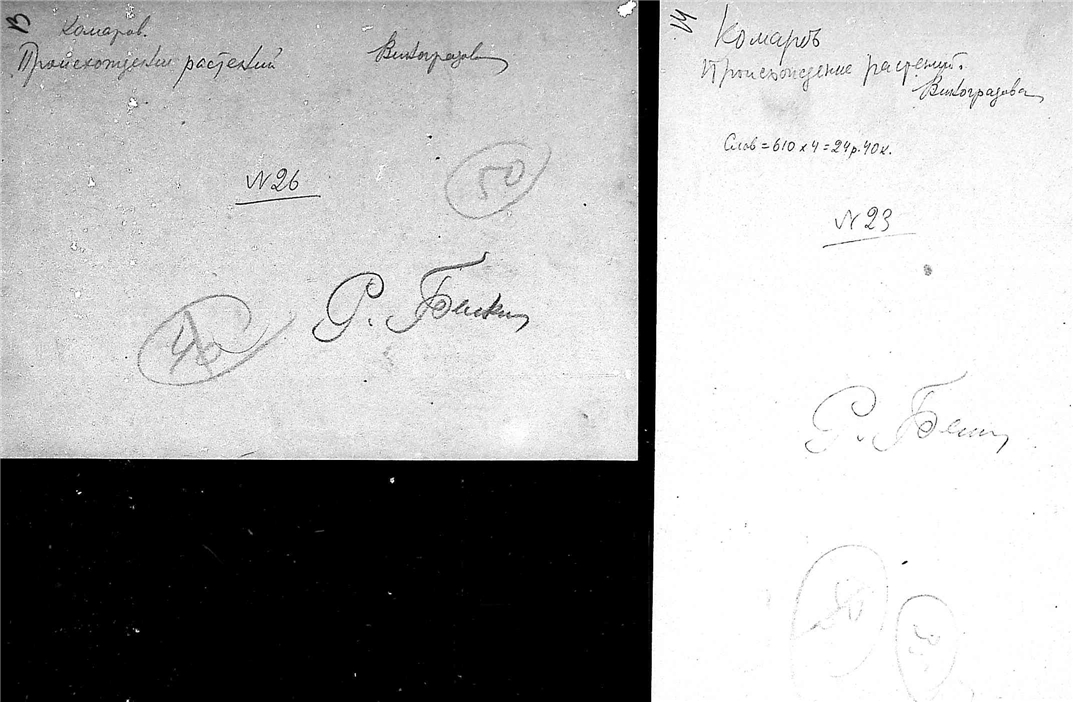 13
Комаров.
Происхождение растений
Виноградова
N 26
50
40
Р.
14
Комаров
Происхождение растений.
Виноградова
Слов = 610 x 4 = 24 р. 40 к.
N 23
Р.